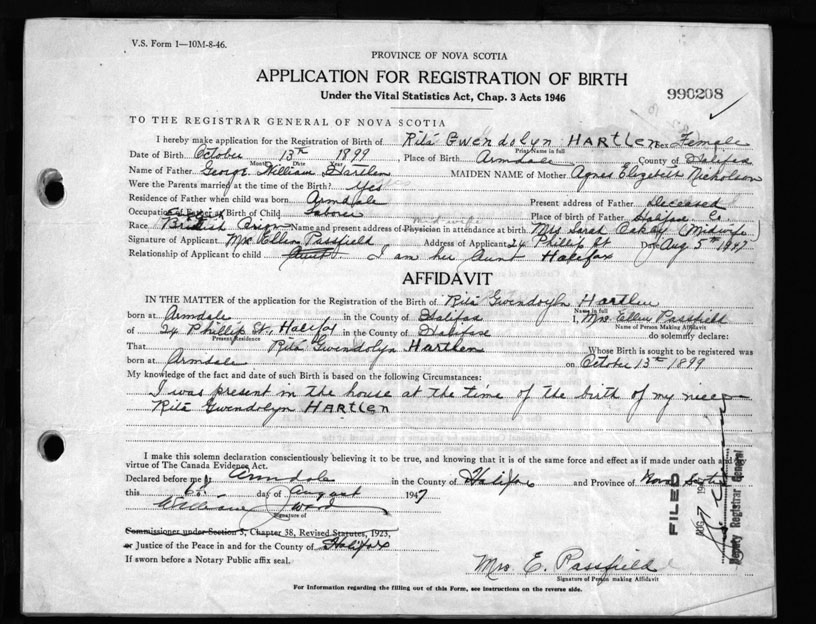 V.S. Form 1—10M-8-46.
PROVINCE OF NOVA SCOTIA
APPLICATION FOR REGISTRATION OF BIRTH
Under the Vital Statistics Act, Chap. 3 Acts 1946
990208
TO THE REGISTRAR GENERAL OF NOVA SCOTIA
I hereby make application for the Registration of Birth of Rita Gwendolyn HARTLEN Sex Female
Print Name in full
Date of Birth October 13th 1899, Place of Birth Armdale County of Halifax
Month Day Year
Name of Father George William Hartlen MAIDEN NAME of Mother Agnes Elizabeth Nicholson
Were the Parents married at the time of the Birth? Yes
Residence of Father when child was born Armdale Present address of Father Deceased
Occupation of Father at Birth of Child Laborer Place of birth of Father Halifax Co.
midwife
Race British Origin Name and present address of Physician in attendance at birth Mrs Sarah (Midwife)
Signature of Applicant Mrs. Ellen Passfield Address of Applicant 24 Phillip St Date Aug 5th 1947
Relationship of Applicant to child Aunt I am her Aunt Halifax
AFFIDAVIT
IN THE MATTER of the application for the Registration of the Birth of Rita Gwendolyn Hartlen
Name in full
born at Armdale in the County of Halifax I, Mrs. Ellen Passfield
Name of Person Making Affidavit
of 24 Phillip St., Halifax in the County of Halifax do solemnly declare:
Present Residence
That Rita Gwendolyn Hartlen Whose Birth is sought to be registered was
born at Armdale on October 13th 1899
My knowledge of the fact and date of such Birth is based on the following Circumstances:
I was present in the house at the time of the birth of my niece
Rita Gwendolyn HARTLEN
I make this solemn declaration conscientiously believing it to be true, and knowing that it is of the same force and effect as if made under oath and by
virtue of The Canada Evidence Act.
Declared before me at Armdale in the County of Halifax and Province of Nova Scotia
this day of August 1947
William Wood
Signature of
Commissioner under Section 3, Chapter 38, Revised Statutes, 1923,
or Justice of the Peace in and for the County of Halifax
If sworn before a Notary Public affix seal.
Mrs. E. Passfield
Signature of Person making Affidavit
For Information regarding the filling out of this Form, see instructions on the reverse side.
FILED
AUG 7 194
Deputy Registrar General